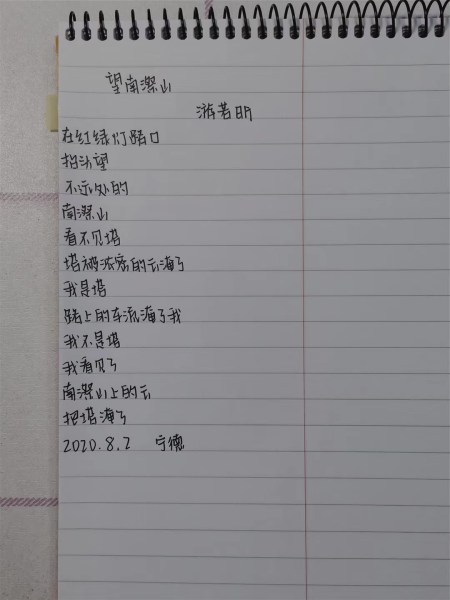 望南漈山
游若昕
在红绿灯路口
抬头望
不远处的
南漈山
看不见塔
塔被浓密的云淹了
我是塔
路上的车流淹了我
我不是塔
我看见了
南漈山上的云
把塔淹了
2020.8.2 宁德